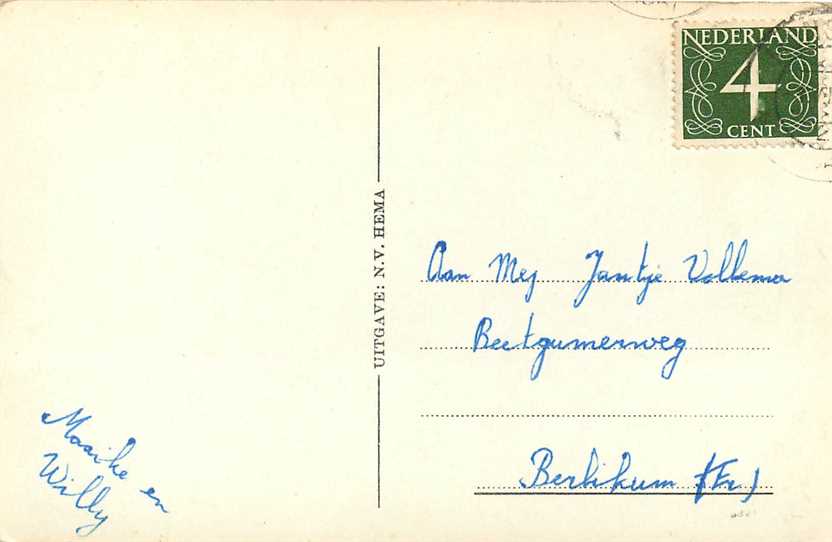 NEDERLAND
4
CENT
UITGAVE: N.V. HEMA
Aan Mej Jantje Vollema
Beetgumerweg
Berlikum (Fr)
Maaike en
Willy